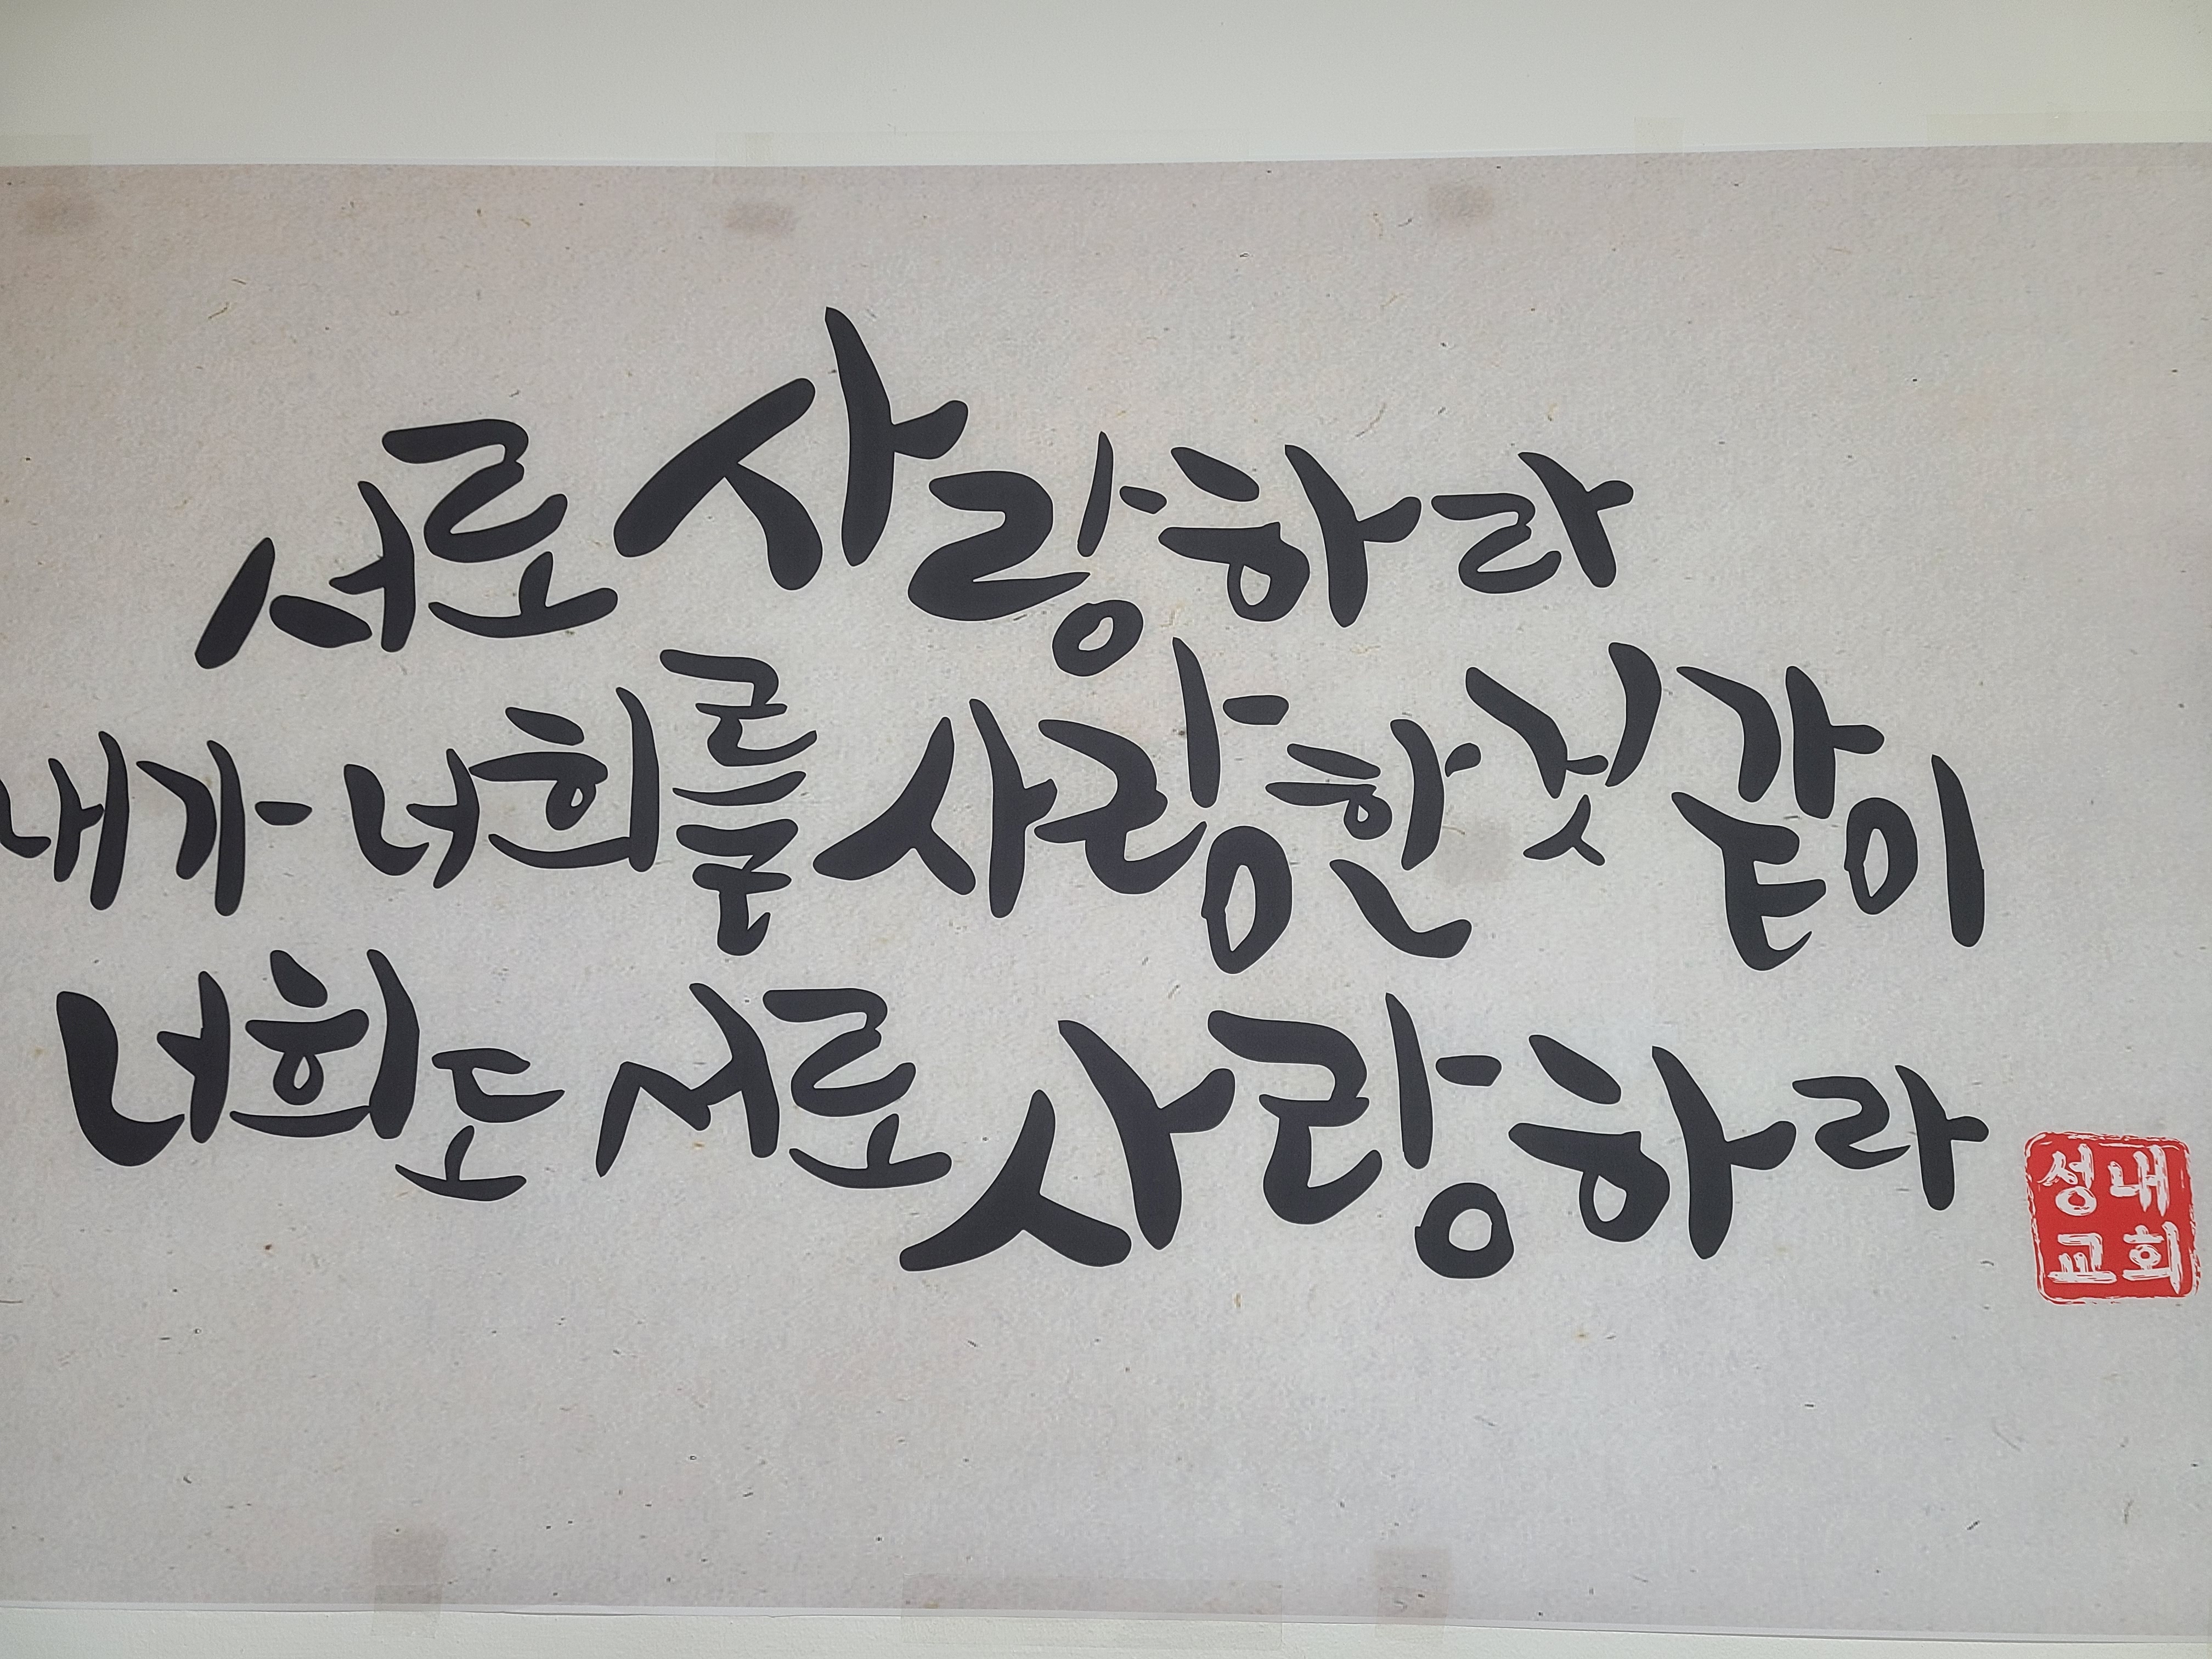 서로 사랑하라
내가 너희를 사랑한 것 같이
너희도 서로 사랑하라
성내
교회